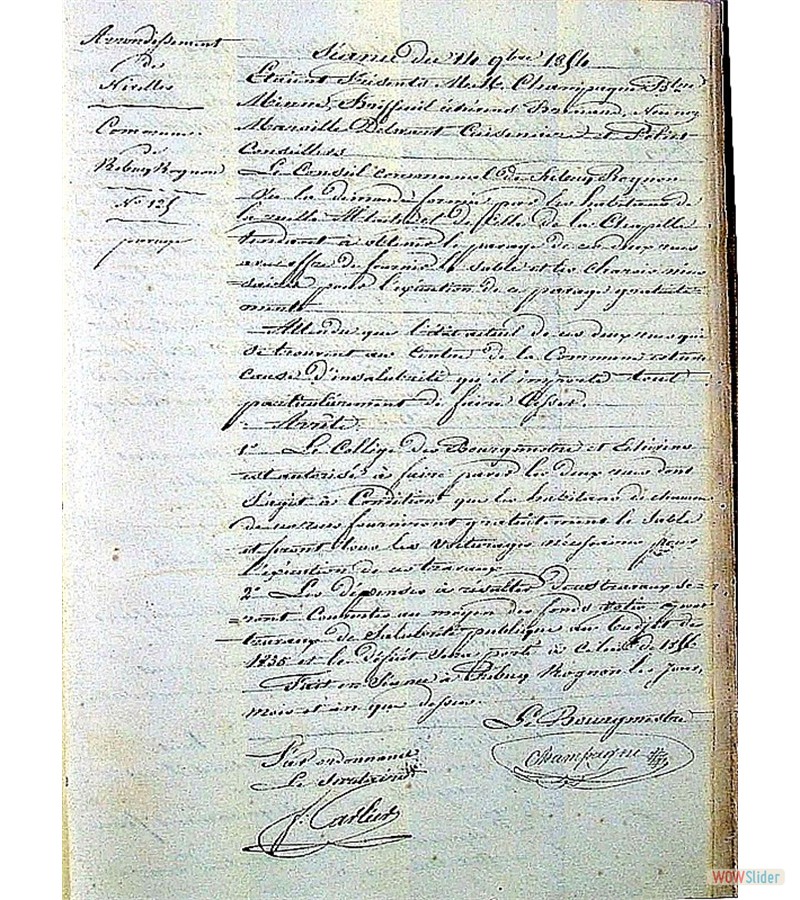 Arrondissement
de
Nivelles
Commune
de
Rebecq Rognon
N° 125
pavage
Séance du 14 9bre 1854
Etaient Présents MM. Champagne Btre
Minne, Echevins
Marousille Delwart Cuisenier et Petit
Conseillers
Le Conseil communal de Rebecq Rognon
Vu la demande formée par les habitans de
la ruelle et de celle de la Chapelle
tendant à obtenir le pavage de ces deux rues
avec offre de fournir le sable et les charois néces
=saires pour l'exécution de ce pavage gratuite
ment
Attendu que l'état actuel de ces deux rues qui
se trouvent au Centre de la Commune est une
cause d'insalubrité qu'il importe tout
particulièrement de faire Cesser.
Arrête
1° Le Collége des Bourgmestre et Echevins
est autorisé à faire paver les deux rues dont
s'agit à Condition que les habitans de chacune
de ces rues fourniront gratuitement le sable
et feront tous les voiturages nécessaires pour
l'exécution de ces travaux
2° Les dépenses à résulter de ces travaux se-
=ront Couvertes au moyen des fonds votés pour
travaux de Salubrité publique au budjet de
et le déficit sera porté à celui de
Fait en Séance à Rebecq Rognon les jour,
mois et an que dessus.
Le Bourgmestre
Champagne
Par ordonnance
Le Secrétaire
J. Carlier
WOWSlider